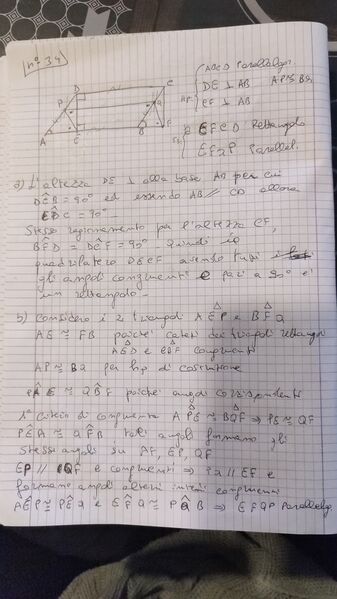 n° 34
D C
P Q
A E B F
Hp. ABCD Parallelogr.
DE ⊥ AB AP≅BQ
CF ⊥ AB
Ts. EFCD Rettangolo
EFQP Parallel.
a) L'altezza DE ⊥ alla base AB per cui
DÊB = 90° ed essendo AB // CD allora
EDC = 90°
Stesso ragionamento per l'altezza CF,
BFD = DCF = 90° quindi il
quadrilatero DECF avendo tutti i
gli angoli congruenti e pari a 90° e'
un rettangolo.
b) Considero i 2 triangoli AEP e BFQ
AE ≅ FB poiché cateti dei triangoli rettangoli
AED e CBF congruenti
AP ≅ BQ per hp di costruzione
PÂE ≅ QBF poiché angoli corrispondenti
1° Criterio di congruenza APE ≅ BQF ⇒ PE ≅ QF
PEA ≅ QFB, tali angoli formano gli
stessi angoli su AF, EP, QF
EP // QF e congruenti ⇒ PQ // EF e
formano angoli alterni interni congruenti
AEP ≅ PEQ e EFQ ≅ PQB ⇒ EFQP Parallelogr.